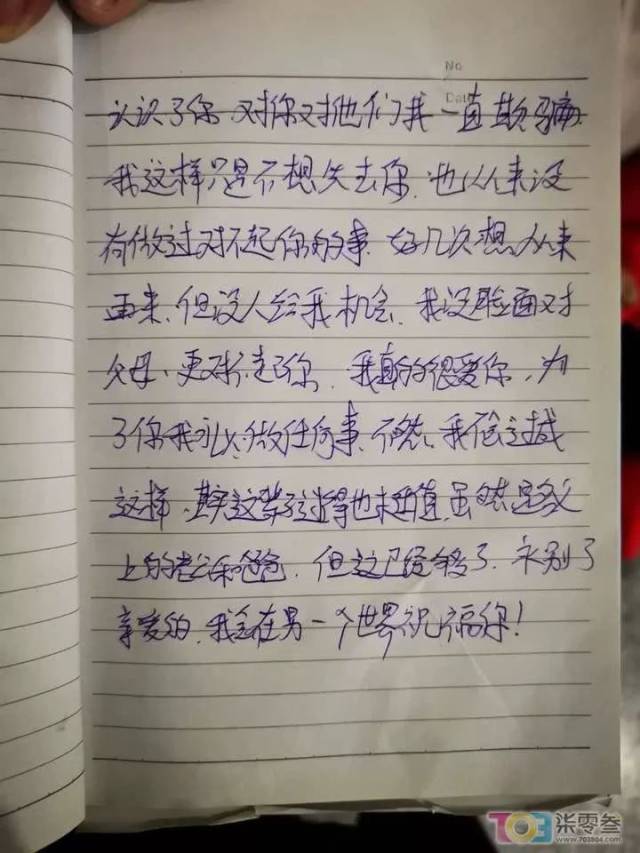 No
Date
认识了你 对你对他们我一直欺骗
我这样只是不想失去你.也从来没
有做过对不起你的事.好几次想从来
再来.但没人给我机会.我没脸面对
父母.更对不起你.我真的很爱你,为
了你我可以做任何事.不然.我
这样.其实这辈子过得也挺值.虽然是名义
上的老公和爸爸.但这已经够了.永别了
亲爱的.我会在另一个世界祝福你!
703 柒零叁
www.703804.com